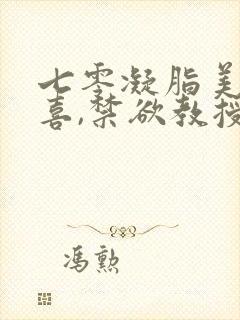 七零凝脂美
喜,禁欲教授
冯勲